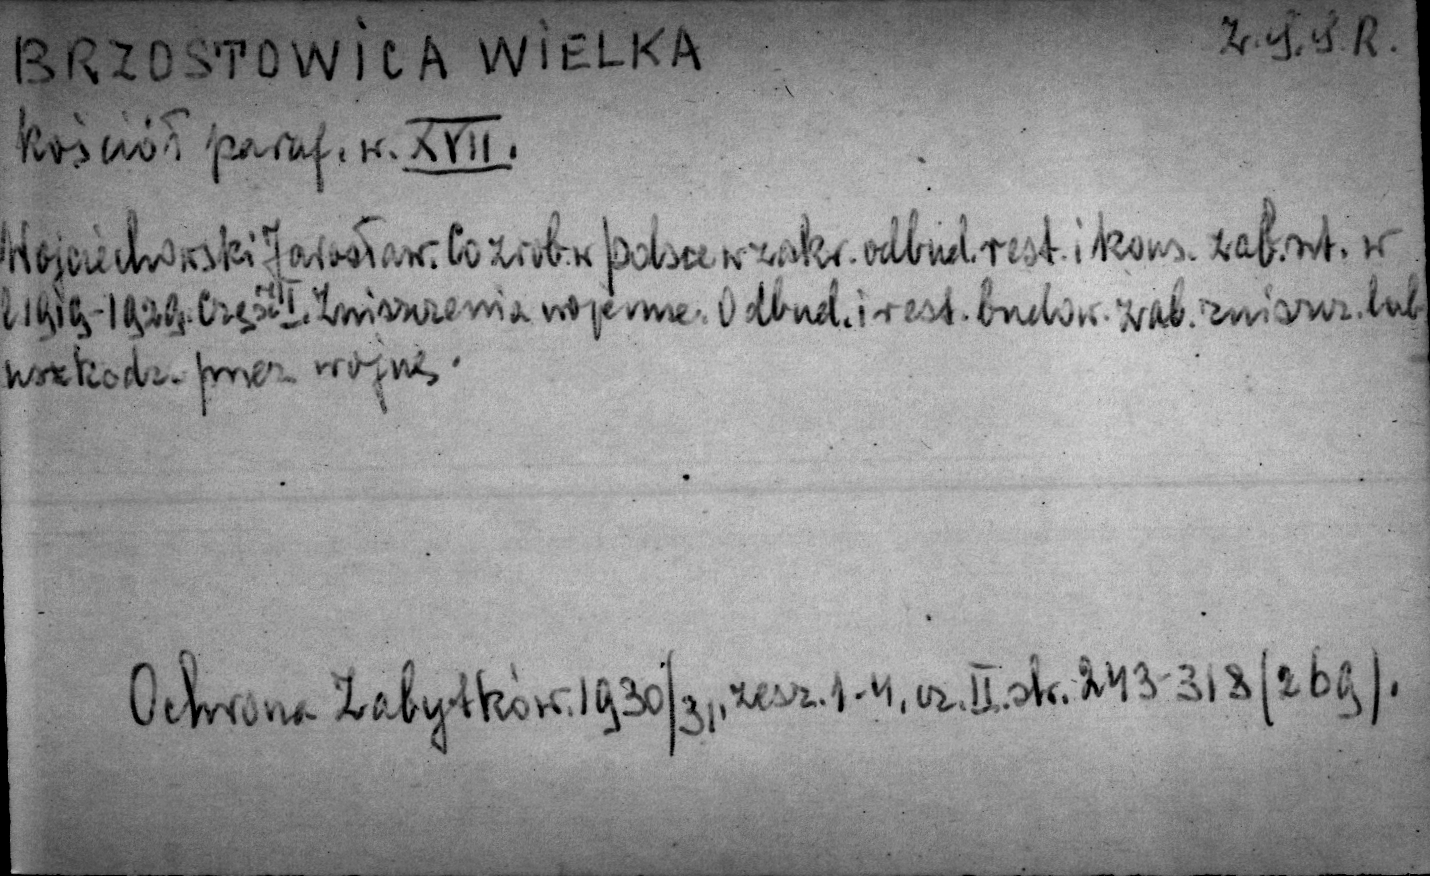 BRZOSTOWICA WIELKA Z.S.S.R.
Kościół paraf. w. XVII.
Wojciechowski Jarosław. Co zrob. w Polsce w zakr. odbud. rest. i kons. zab. szt. w
l 1919-1929. Część I. Zniszczenia wojenne. Odbud. i rest. budow. zab. zniszcz. lub
uszkodz. przez wojnę.
Ochrona Zabytków. 1930/31, zesz. 1-4, cz. II. str. 243-318 (269).